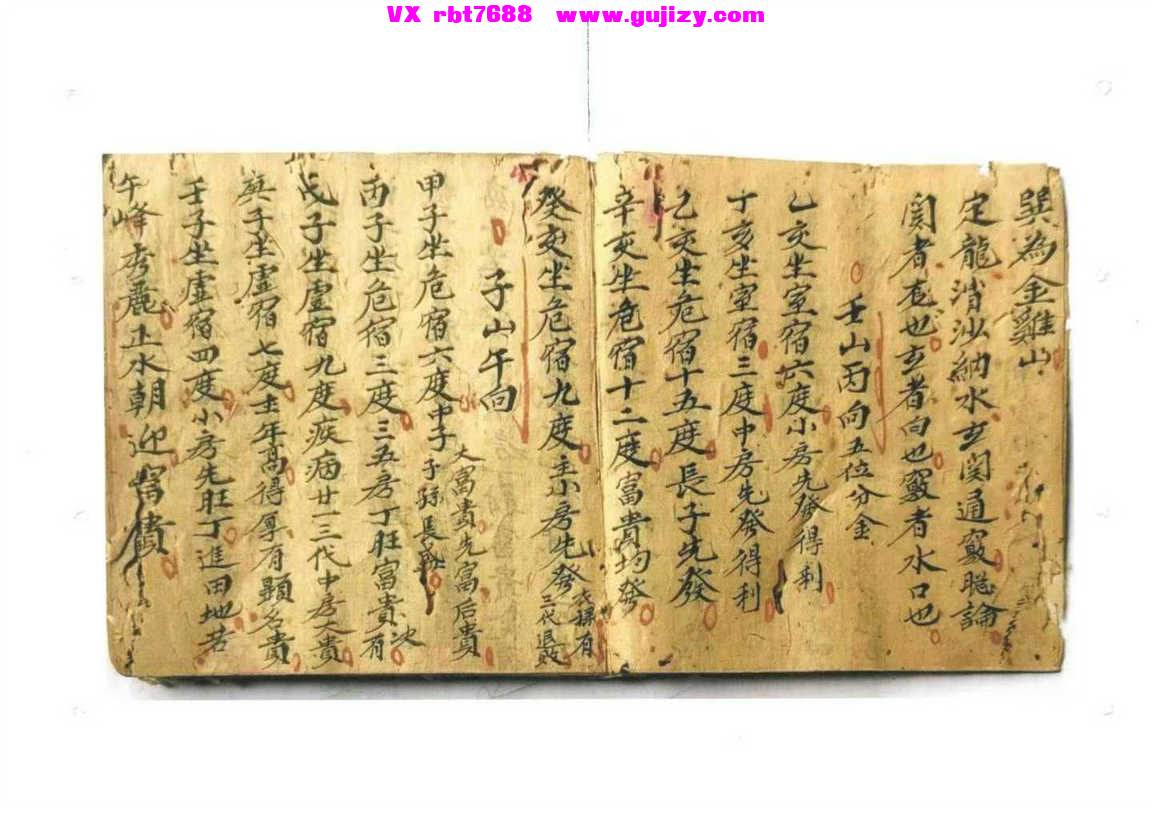 VX rbt7688 www.gujizy.com
巽為金雞山
定龍消沙納水玄関通竅聪論
関者也玄者向也竅者水口也
壬山丙向五位分金
乙亥坐室宿六度小房先發得利
丁亥坐室宿三度中房先發得利
乙亥坐危宿十五度長子先發
辛亥坐危宿十二度富貴均發
癸亥坐危宿九度主小房先發
子山午向
甲子坐危宿六度中子子孫長 大富貴先富后貴
丙子坐危宿三度三五房丁旺富貴有
戊子坐虛宿九度疾病廿一三代中房大貴
庚子坐虛宿七度主年高得厚有顯名貴
壬子坐虛宿四度小房先旺丁進田地若
午峰秀麗正水朝迎富貴